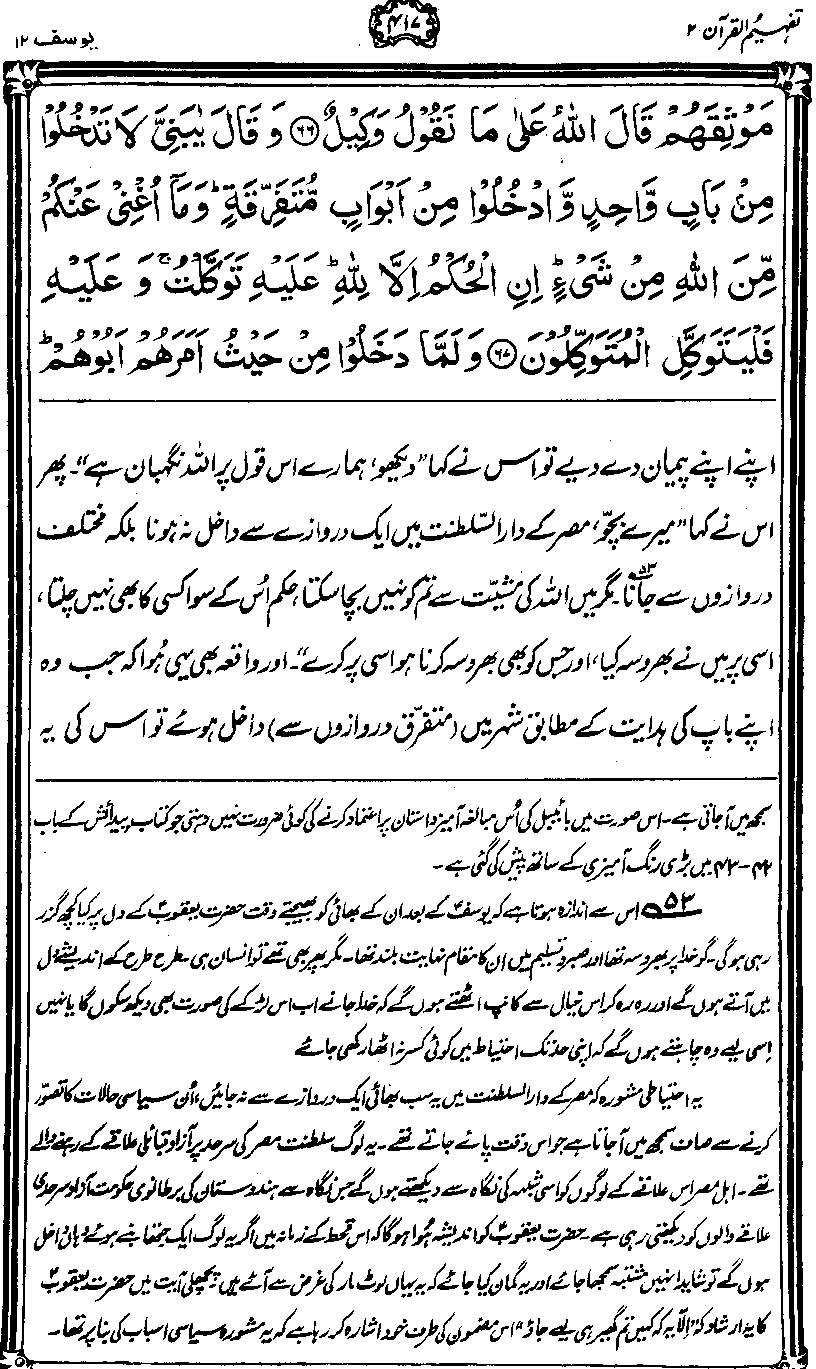 تفہیم القرآن ۲
۴۱۷
یوسف ۱۲
مَوْثِقَهُمْ قَالَ اللّٰهُ عَلٰى مَا نَقُوْلُ وَكِيْلٌ ﴿۶۶﴾ وَ قَالَ يٰبَنِيَّ لَا تَدْخُلُوْا
مِنْۢ بَابٍ وَّاحِدٍ وَّادْخُلُوْا مِنْ اَبْوَابٍ مُّتَفَرِّقَةٍ ؕ وَمَاۤ اُغْنِيْ عَنْكُمْ
مِّنَ اللّٰهِ مِنْ شَيْءٍ ؕ اِنِ الْحُكْمُ اِلَّا لِلّٰهِ ؕ عَلَيْهِ تَوَكَّلْتُ ۚ وَ عَلَيْهِ
فَلْيَتَوَكَّلِ الْمُتَوَكِّلُوْنَ ﴿۶۷﴾ وَلَمَّا دَخَلُوْا مِنْ حَيْثُ اَمَرَهُمْ اَبُوْهُمْ ؕ
اپنے اپنے پیمان دے دیے تو اس نے کہا ”دیکھو، ہمارے اس قول پر اللہ نگہبان ہے“۔ پھر
اس نے کہا ”میرے بچّو، مصر کے دارالسّلطنت میں ایک دروازے سے داخل نہ ہونا بلکہ مختلف
دروازوں سے جانا۵۳۔ مگر میں اللہ کی مشیّت سے تم کو نہیں بچا سکتا، حکم اُس کے سوا کسی کا بھی نہیں چلتا،
اسی پر میں نے بھروسہ کیا، اور جس کو بھی بھروسہ کرنا ہو اسی پر کرے“۔ اور واقعہ بھی یہی ہُوا کہ جب وہ
اپنے باپ کی ہدایت کے مطابق شہر میں (متفرّق دروازوں سے) داخل ہوئے تو اس کی یہ
سمجھ میں آجاتی ہے۔ اس صورت میں بائیبل کی اُس مبالغہ آمیز داستان پر اعتماد کرنے کی کوئی ضرورت نہیں رہتی جو کتاب پیدائش کے باب
۴۲-۴۳ میں بڑی رنگ آمیزی کے ساتھ پیش کی گئی ہے۔
۵۳ اس سے اندازہ ہوتا ہے کہ یوسفؑ کے بعد ان کے بھائی کو بھیجتے وقت حضرت یعقوبؑ کے دل پر کیا کچھ گزر
رہی ہوگی۔ گو خدا پر بھروسہ تھا اور صبر و تسلیم میں ان کا مقام نہایت بلند تھا۔ مگر پھر بھی تھے تو انسان ہی۔ طرح طرح کے اندیشے دل
میں آتے ہوں گے اور رہ رہ کر اس خیال سے کانپ اٹھتے ہوں گے کہ خدا جانے اب اس لڑکے کی صورت بھی دیکھ سکوں گا یا نہیں
اِسی لیے وہ چاہتے ہوں گے کہ اپنی حد تک احتیاط میں کوئی کسر نہ اٹھا رکھی جائے
یہ احتیاطی مشورہ کہ مصر کے دارالسلطنت میں یہ سب بھائی ایک دروازے سے نہ جائیں، اُن سیاسی حالات کا تصوّر
کرنے سے صاف سمجھ میں آجاتا ہے جو اس وقت پائے جاتے تھے۔ یہ لوگ سلطنت مصر کی سرحد پر آزاد قبائلی علاقے کے رہنے والے
تھے۔ اہل مصر اس علاقے کے لوگوں کو اسی شبہہ کی نگاہ سے دیکھتے ہوں گے جس نگاہ سے ہندوستان کی برطانوی حکومت آزاد سرحدی
علاقے والوں کو دیکھتی رہی ہے۔ حضرت یعقوبؑ کو اندیشہ ہُوا ہوگا کہ اس قحط کے زمانہ میں اگر یہ لوگ ایک جتھا بنے ہوئے وہاں داخل
ہوں گے تو شاید انہیں مشتبہ سمجھا جائے اور یہ گمان کیا جائے کہ یہ یہاں لوٹ مار کی غرض سے آئے ہیں۔ پچھلی آیت میں حضرت یعقوبؑ
کا یہ ارشاد کہ ”اِلّا یہ کہ کہیں تم گھیر ہی لیے جاؤ“ اس مضمون کی طرف خود اشارہ کر رہا ہے کہ یہ مشورہ سیاسی اسباب کی بنا پر تھا۔